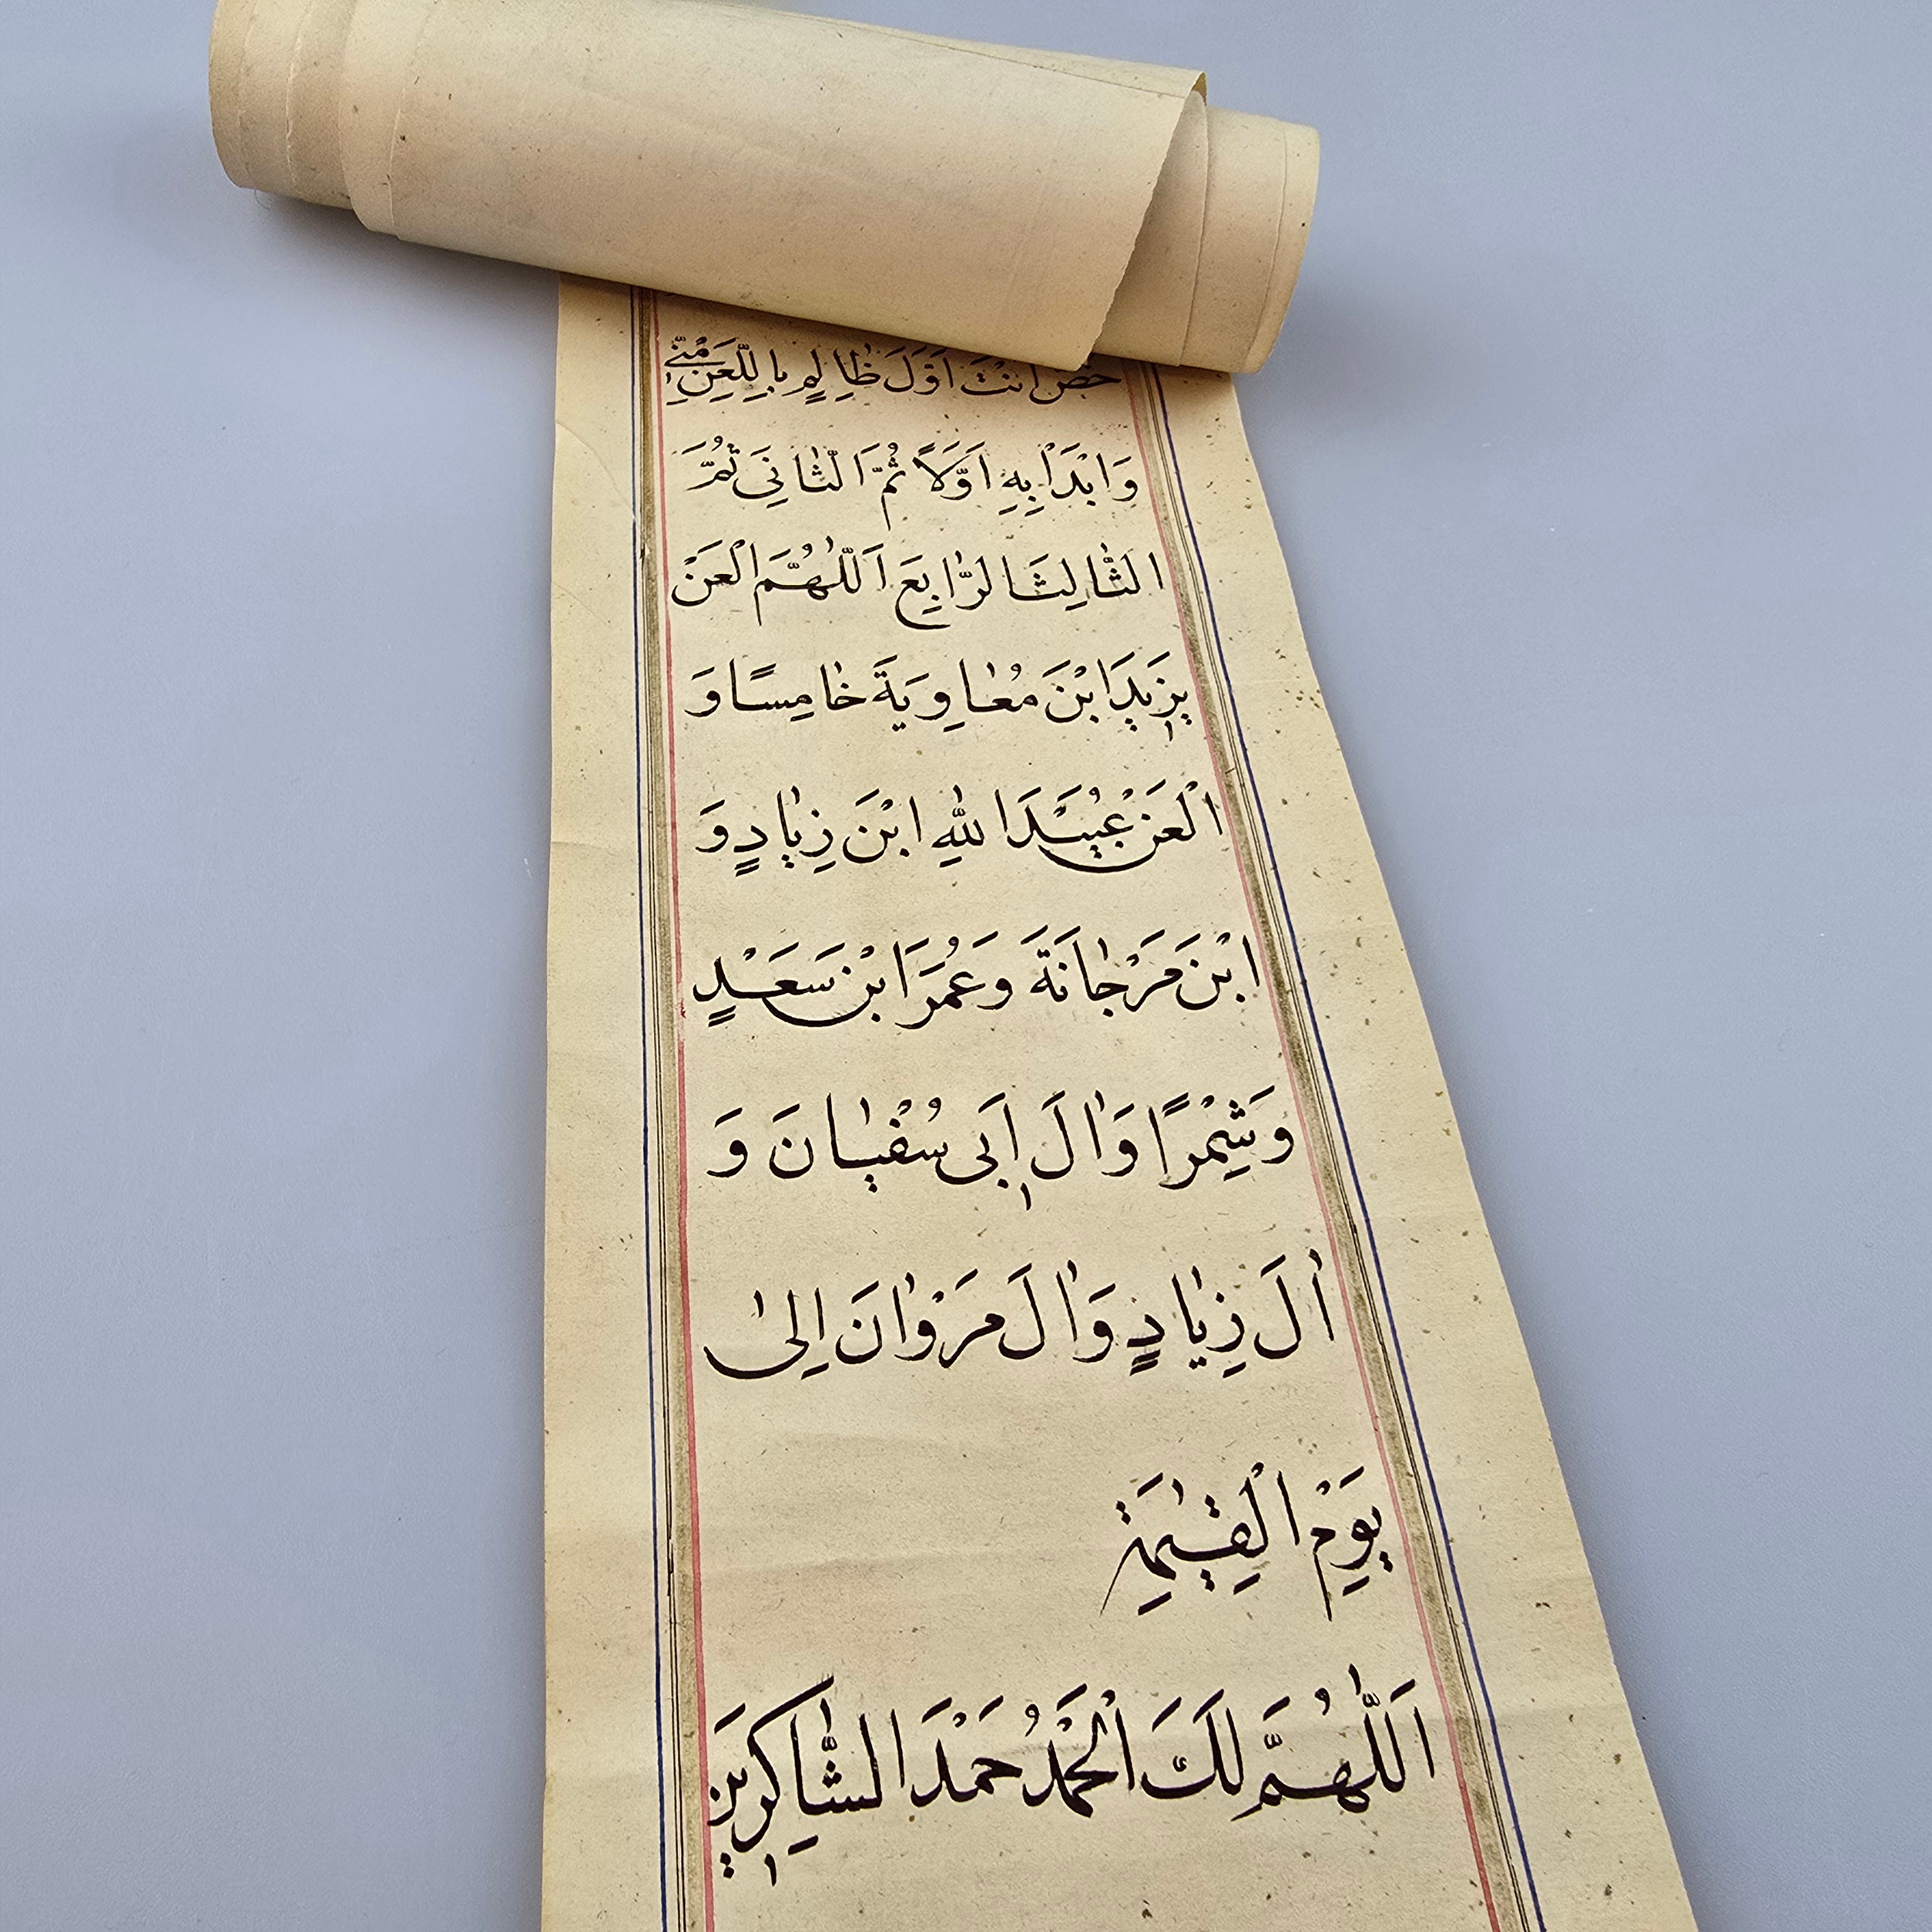 خُصَّ اَنْتَ اَوَّلَ ظَالِمٍ بِاللَّعْنِ مِنّٖى
وَابْدَاْ بِهٖ اَوَّلًا ثُمَّ الثَّانِىَ ثُمَّ
الثَّالِثَ الرَّابِعَ اَللّٰهُمَّ الْعَنْ
يَزٖيدَ ابْنَ مُعَاوِيَةَ خَامِسًا وَ
الْعَنْ عُبَيْدَ اللّٰهِ ابْنَ زِيَادٍ وَ
ابْنَ مَرْجَانَةَ وَعُمَرَ ابْنَ سَعْدٍ
وَشِمْرًا وَاٰلَ اَبٖى سُفْيَانَ وَ
اٰلَ زِيَادٍ وَاٰلَ مَرْوَانَ اِلٰى
يَوْمِ الْقِيٰمَةِ
اَللّٰهُمَّ لَكَ الْحَمْدُ حَمْدَ الشَّاكِرٖينَ